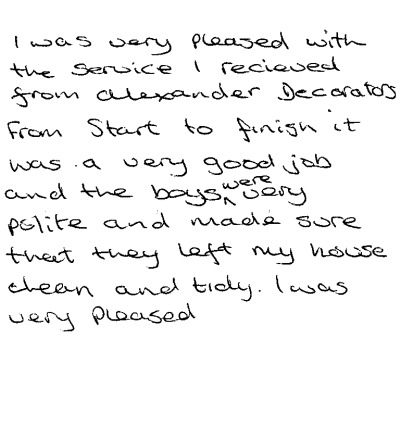 I was very pleased with
the service I recieved
from Alexander Decorators
From Start to finish it
was a very good job
and the boys were very
polite and made sure
that they left my house
clean and tidy. I was
very pleased